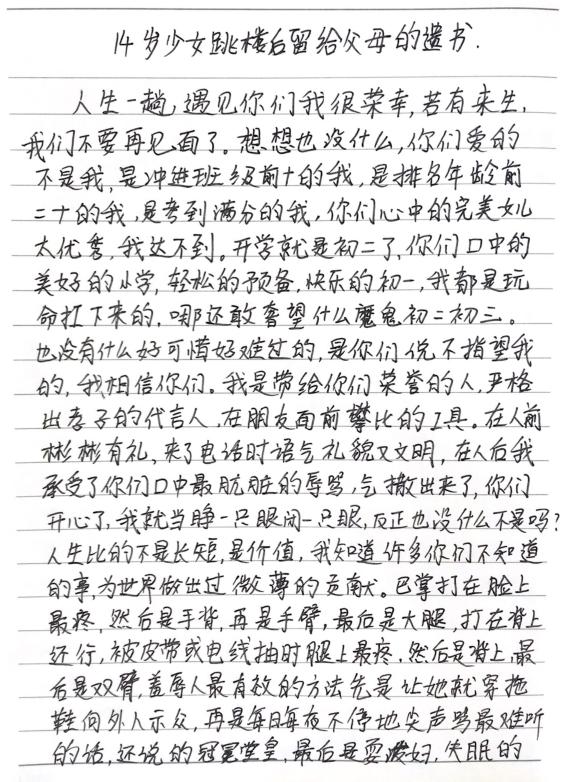 14岁少女跳楼后留给父母的遗书.
人生一趟,遇见你们我很荣幸,若有来生,
我们不要再见面了。想想也没什么,你们爱的
不是我,是冲进班级前十的我,是排名年龄前
二十的我,是考到满分的我,你们心中的完美女儿
太优秀,我达不到。开学就是初二了,你们口中的
美好的小学,轻松的预备,快乐的初一,我都是玩
命扛下来的,哪还敢奢望什么魔鬼初二初三。
也没有什么好可惜好难过的,是你们说不指望我
的,我相信你们。我是带给你们荣誉的人,严格
出孝子的代言人,在朋友面前攀比的工具。在人前
彬彬有礼,来了电话时语气礼貌又文明,在人后我
承受了你们口中最肮脏的辱骂,气撒出来了,你们
开心了,我就当睁一只眼闭一只眼,反正也没什么不是吗?
人生比的不是长短,是价值,我知道许多你们不知道
的事,为世界做出过微薄的贡献。巴掌打在脸上
最疼,然后是手背,再是手臂,最后是大腿,打在背上
还行,被皮带或电线抽时腿上最疼,然后是背上,最
后是双臂,羞辱人最有效的方法先是让她就穿拖
鞋向外人示众,再是每日每夜不停地尖声骂最难听
的话,还说的冠冕堂皇,最后是耍泼妇,失眠的